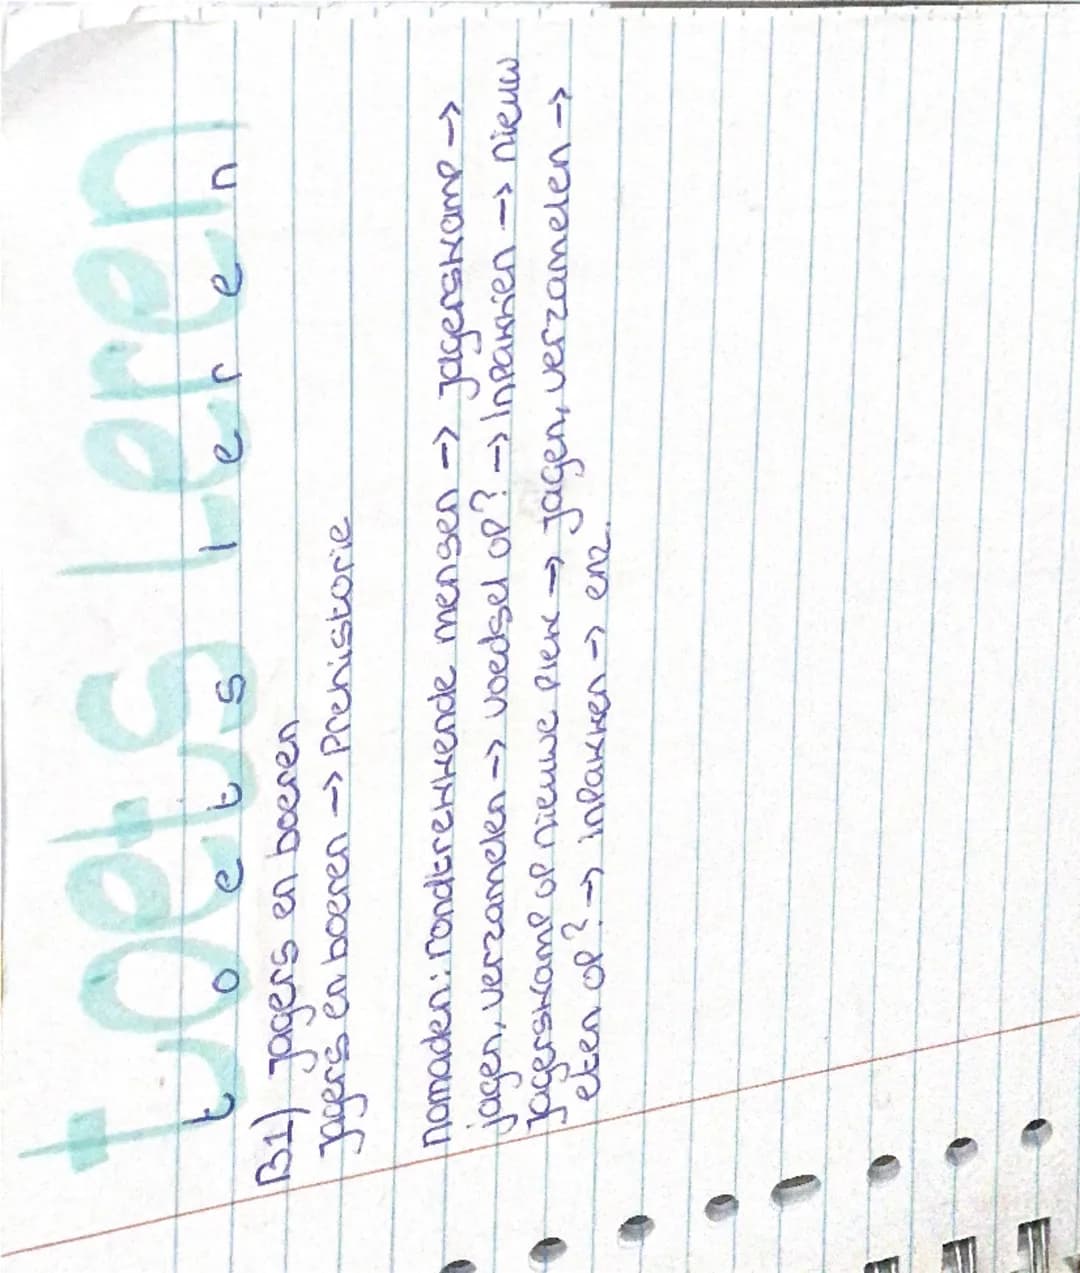 toets leren
toets leren
B.1) jagers en boeren
jagers en boeren -> Prehistorie
nomaden: rondtrekkende mensen -> jagerskamp ->
jagen, verzamelen -> voedsel op? -> inpakken -> nieuw
jagerskamp op nieuwe plek -> jagen, verzamelen ->
eten op? -> inpakken -> enz.